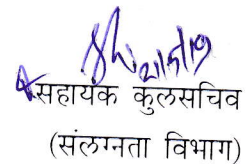 सहायक कुलसचिव
(संलग्नता विभाग)